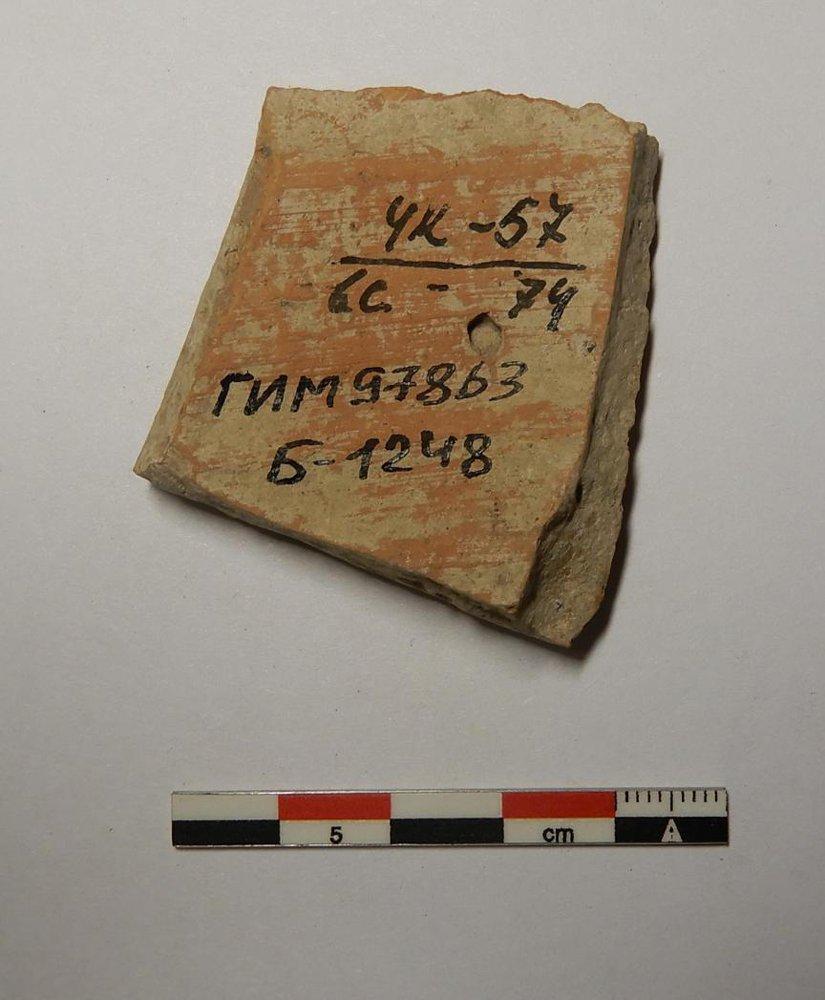 ЧК-57
6С - 74
ГИМ 97863
Б-1248
5 cm